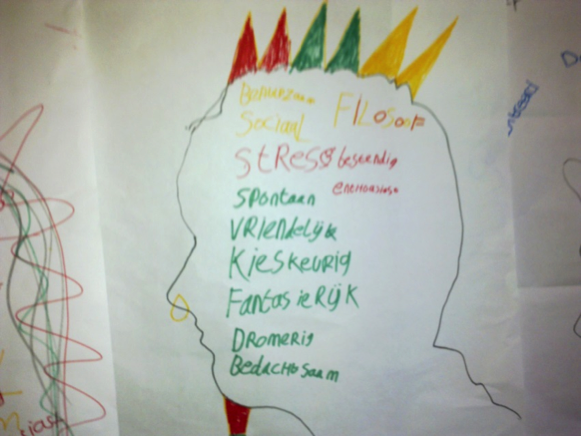 Sociaal FILOSOOF
StRESS bestendig
Spontaan
VRIENdelijk
KiesKeurig
FantasieRijK
DROMERig
BedachtSaam